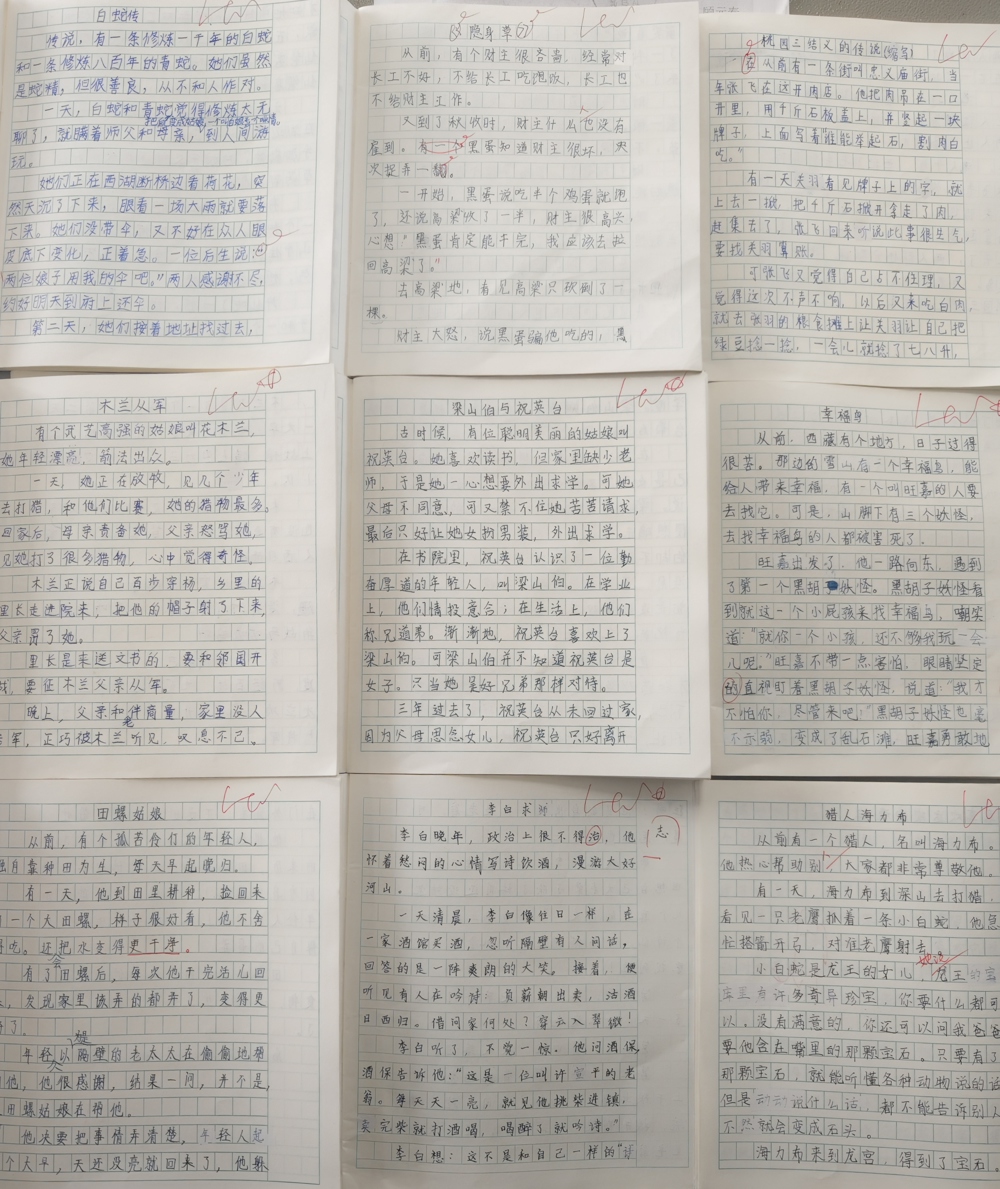 白蛇传
传说，有一条修炼一千年的白蛇
和一条修炼八百年的青蛇。她们虽然
是蛇精，但很善良，从不和人作对。
一天，白蛇和青蛇觉得修炼太无
聊了，就瞒着师父和母亲，到人间游
玩。
她们正在西湖断桥边看荷花，突
然天沉了下来，眼看一场大雨就要落
下来。她们没带伞，又不好在众人眼
皮底下变化，正着急。一位后生说：“
两位娘子用我的伞吧。”两人感谢不尽，
约好明天到府上还伞。
第二天，她们按着地址找过去，
隐身草
从前，有个财主很吝啬，经常对
长工不好，不给长工吃饱饭，长工也
不给财主工作。
又到了秋收时，财主什么也没有
雇到。有一个黑蛋知道财主很坏，决
次捉弄一翻。
一开始，黑蛋说吃半个鸡蛋就饱
了，还说高粱砍了一半，财主很高兴，
心想“黑蛋肯定能干完，我应该去拉
回高粱了。”
去高粱地，看见高粱只砍倒了一
棵。
财主大怒，说黑蛋骗他吃的，黑
桃园三结义的传说(缩写)
在从前有一条街叫忠义庙街，当
年张飞在这开肉店。他把肉吊在一口
井里，用千斤石板盖上，并竖起一块
牌子，上面写着“谁能举起石，割肉白
吃。”
有一天关羽看见牌子上的字，就
上去一掀，把千斤石掀开拿走了肉，
赶集去了，张飞回来听说此事很生气，
要找关羽算账。
可张飞又觉得自己占不住理，又
觉得这次不声不响，以后又来吃白肉，
就去张羽的粮食摊上让关羽让自己把
绿豆捻一捻，一会儿就捻了七八升，
木兰从军
有个武艺高强的姑娘叫花木兰，
她年轻漂亮，箭法出众。
一天，她正在放牧，见几个少年
去打猎，和他们比赛，她的猎物最多。
回家后，母亲责备她，父亲怒骂她，
见她打了很多猎物，心中觉得奇怪。
木兰正说自己百步穿杨，乡里的
里长走进院来，把他的帽子射了下来，
父亲骂了她。
里长是来送文书的，要和邻国开
战，要征木兰父亲从军。
晚上，父亲和老伴商量，家里没人
军，正巧被木兰听见，叹息不已。
梁山伯与祝英台
古时候，有位聪明美丽的姑娘叫
祝英台。她喜欢读书，但家里缺少老
师，于是她一心想要外出求学。可她
父母不同意，可又禁不住她苦苦请求，
最后只好让她女扮男装，外出求学。
在书院里，祝英台认识了一位勤
奋厚道的年轻人，叫梁山伯。在学业
上，他们情投意合；在生活上，他们
称兄道弟。渐渐地，祝英台喜欢上了
梁山伯。可梁山伯并不知道祝英台是
女子。只当她是好兄弟那样对待。
三年过去了，祝英台从未回过家，
因为父母思念女儿，祝英台只好离开
幸福鸟
从前，西藏有个地方，日子过得
很苦。那边的雪山有一个幸福鸟，能
给人带来幸福，有一个叫旺嘉的人要
去找它。可是，山脚下有三个妖怪，
去找幸福鸟的人都被害死了。
旺嘉出发了，他一路向东，遇到
了第一个黑胡子妖怪。黑胡子妖怪看
到就这一个小屁孩来找幸福鸟，嘲笑
道：“就你一个小孩，还不够我玩一会
儿呢。”旺嘉不带一点害怕，眼睛坚定
的直视盯着黑胡子妖怪，说道：“我才
不怕你，尽管来吧：“黑胡子妖怪也毫
不示弱，变成了乱石滩，旺嘉勇敢地
田螺姑娘
从前，有个孤苦伶仃的年轻人，
独自靠种田为生，每天早起晚归。
有一天，他到田里耕种，捡回来
一个大田螺，样子很好看，他不舍
得吃。还把水变得更干净。
有了田螺后，每次他干完活儿回
发现家里该弄的都弄了，变得更
了。
年轻以为是隔壁的老太太在偷偷地帮
他，他很感谢，结果一问，并不是，
田螺姑娘在帮他。
他决要把事情弄清楚，年轻人起
个大早，天还没亮就回来了，他躲
李白求师
李白晚年，政治上很不得治，他
志
怀着愁闷的心情写诗饮酒，漫游大好
河山。
一天清晨，李白像往日一样，在
一家酒馆买酒，忽听隔壁有人问话，
回答的是一阵爽朗的大笑。接着，便
听见有人在吟诗：负薪朝出卖，沽酒
日西归。借问家何处？穿云入翠微！
李白听了，不觉一惊。他问酒保，
酒保告诉他：“这是一位叫许宣平的老
翁。每天天一亮，就见他挑柴进镇，
卖完柴就打酒喝，喝醉了就吟诗。”
李白想：这不是和自己一样的“诗
猎人海力布
从前有一个猎人，名叫海力布。
他热心帮助别人，大家都非常尊敬他。
有一天，海力布到深山去打猎，
看见一只老鹰抓着一条小白蛇，他急
忙搭箭开弓，对准老鹰射去。
小白蛇是龙王的女儿，她说龙王的宝
宝里有许多奇异珍宝，你要什么都可
以。没有满意的，你还可以问我爸爸
要他含在嘴里的那颗宝石。只要有了
那颗宝石，就能听懂各种动物说的话
但是动物说什么话，都不能告诉别人
不然就会变成石头。
海力布来到龙宫，得到了宝石。